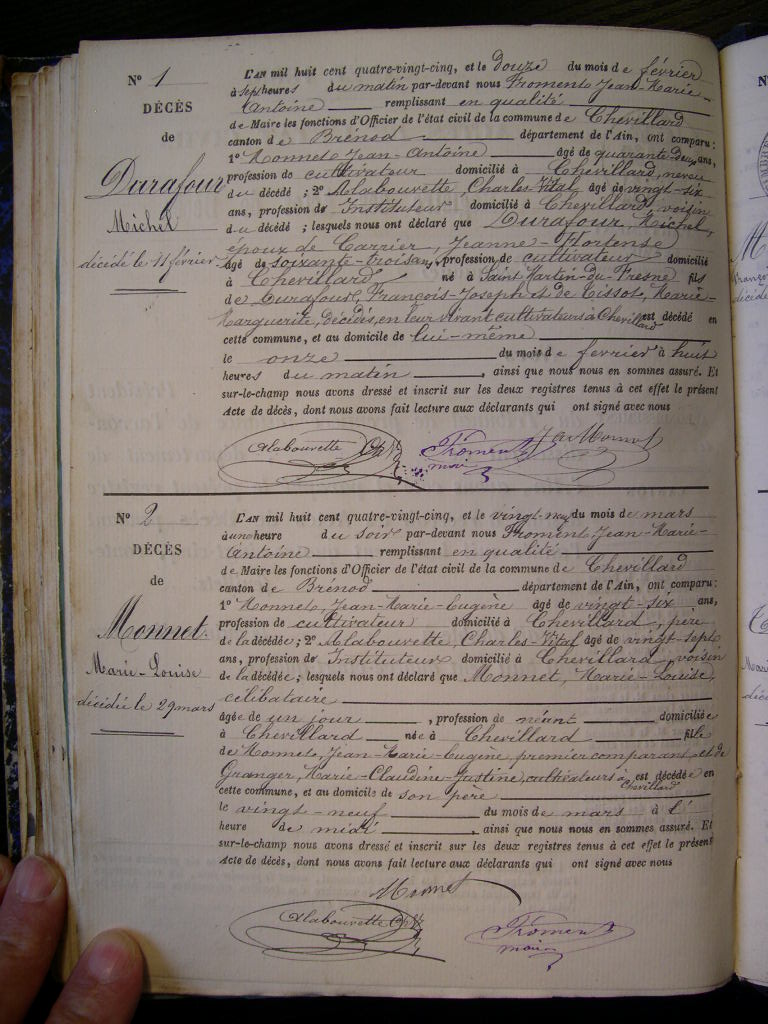 N° 1
DÉCÈS
de
Durafour
Michel
décédé le 11 février
L'AN mil huit cent quatre-vingt-cinq, et le douze du mois de février
à sept heures du matin par-devant nous Froment, Jean-Marie-
Antoine remplissant en qualité
de Maire les fonctions d'Officier de l'état civil de la commune de Chevillard
canton de Brénod département de l'Ain, ont comparu:
1° Monnet, Jean-Antoine âgé de quarante-deux ans,
profession de cultivateur domicilié à Chevillard, neveu
du décédé; 2° Alabouvette, Charles-Vital âgé de vingt-six
ans, profession de Instituteur domicilié à Chevillard, voisin
du décédé; lesquels nous ont déclaré que Durafour, Michel,
époux de Carrier, Jeanne-Hortense
âgé de soixante-trois ans, profession de cultivateur domicilié
à Chevillard né à Saint Martin-du-Fresne fils
de Durafour, François-Joseph et de Tissot, Marie-
Marguerite, décédés, en leur vivant cultivateurs à Chevillard est décédé en
cette commune, et au domicile de lui-même
le onze du mois de février à huit
heures du matin, ainsi que nous nous en sommes assuré. Et
sur-le-champ nous avons dressé et inscrit sur les deux registres tenus à cet effet le présent
Acte de décès, dont nous avons fait lecture aux déclarants qui ont signé avec nous
Alabouvette Ch. V. Froment J A Monnet
maire
N° 2
DÉCÈS
de
Monnet
Marie-Louise
décédée le 29 mars
L'AN mil huit cent quatre-vingt-cinq, et le vingt-neuf du mois de mars
à une heure du soir par-devant nous Froment Jean-Marie-
Antoine remplissant en qualité
de Maire les fonctions d'Officier de l'état civil de la commune de Chevillard
canton de Brénod département de l'Ain, ont comparu:
1° Monnet, Jean-Marie-Eugène âgé de vingt-six ans,
profession de cultivateur domicilié à Chevillard, père
de la décédée; 2° Alabouvette, Charles-Vital âgé de vingt-sept
ans, profession de Instituteur domicilié à Chevillard, voisin
de la décédée; lesquels nous ont déclaré que Monnet, Marie-Louise,
célibataire
âgée de un jour, profession de néant domiciliée
à Chevillard née à Chevillard fille
de Monnet, Jean-Marie-Eugène, premier comparant, et de
Granger, Marie-Claudine-Justine, cultivateurs à Chevillard est décédée en
cette commune, et au domicile de son père
le vingt-neuf du mois de mars à l'
heure de midi, ainsi que nous nous en sommes assuré. Et
sur-le-champ nous avons dressé et inscrit sur les deux registres tenus à cet effet le présent
Acte de décès, dont nous avons fait lecture aux déclarants qui ont signé avec nous
Monnet
Alabouvette Ch. V. Froment
maire